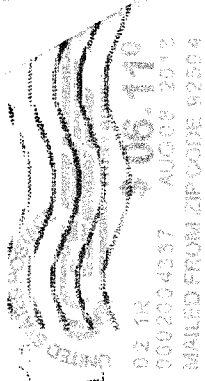 UNITED
$ 06.11⁰
02 1R
0002004337 AUG 08 2012
MAILED FROM ZIP CODE 92504